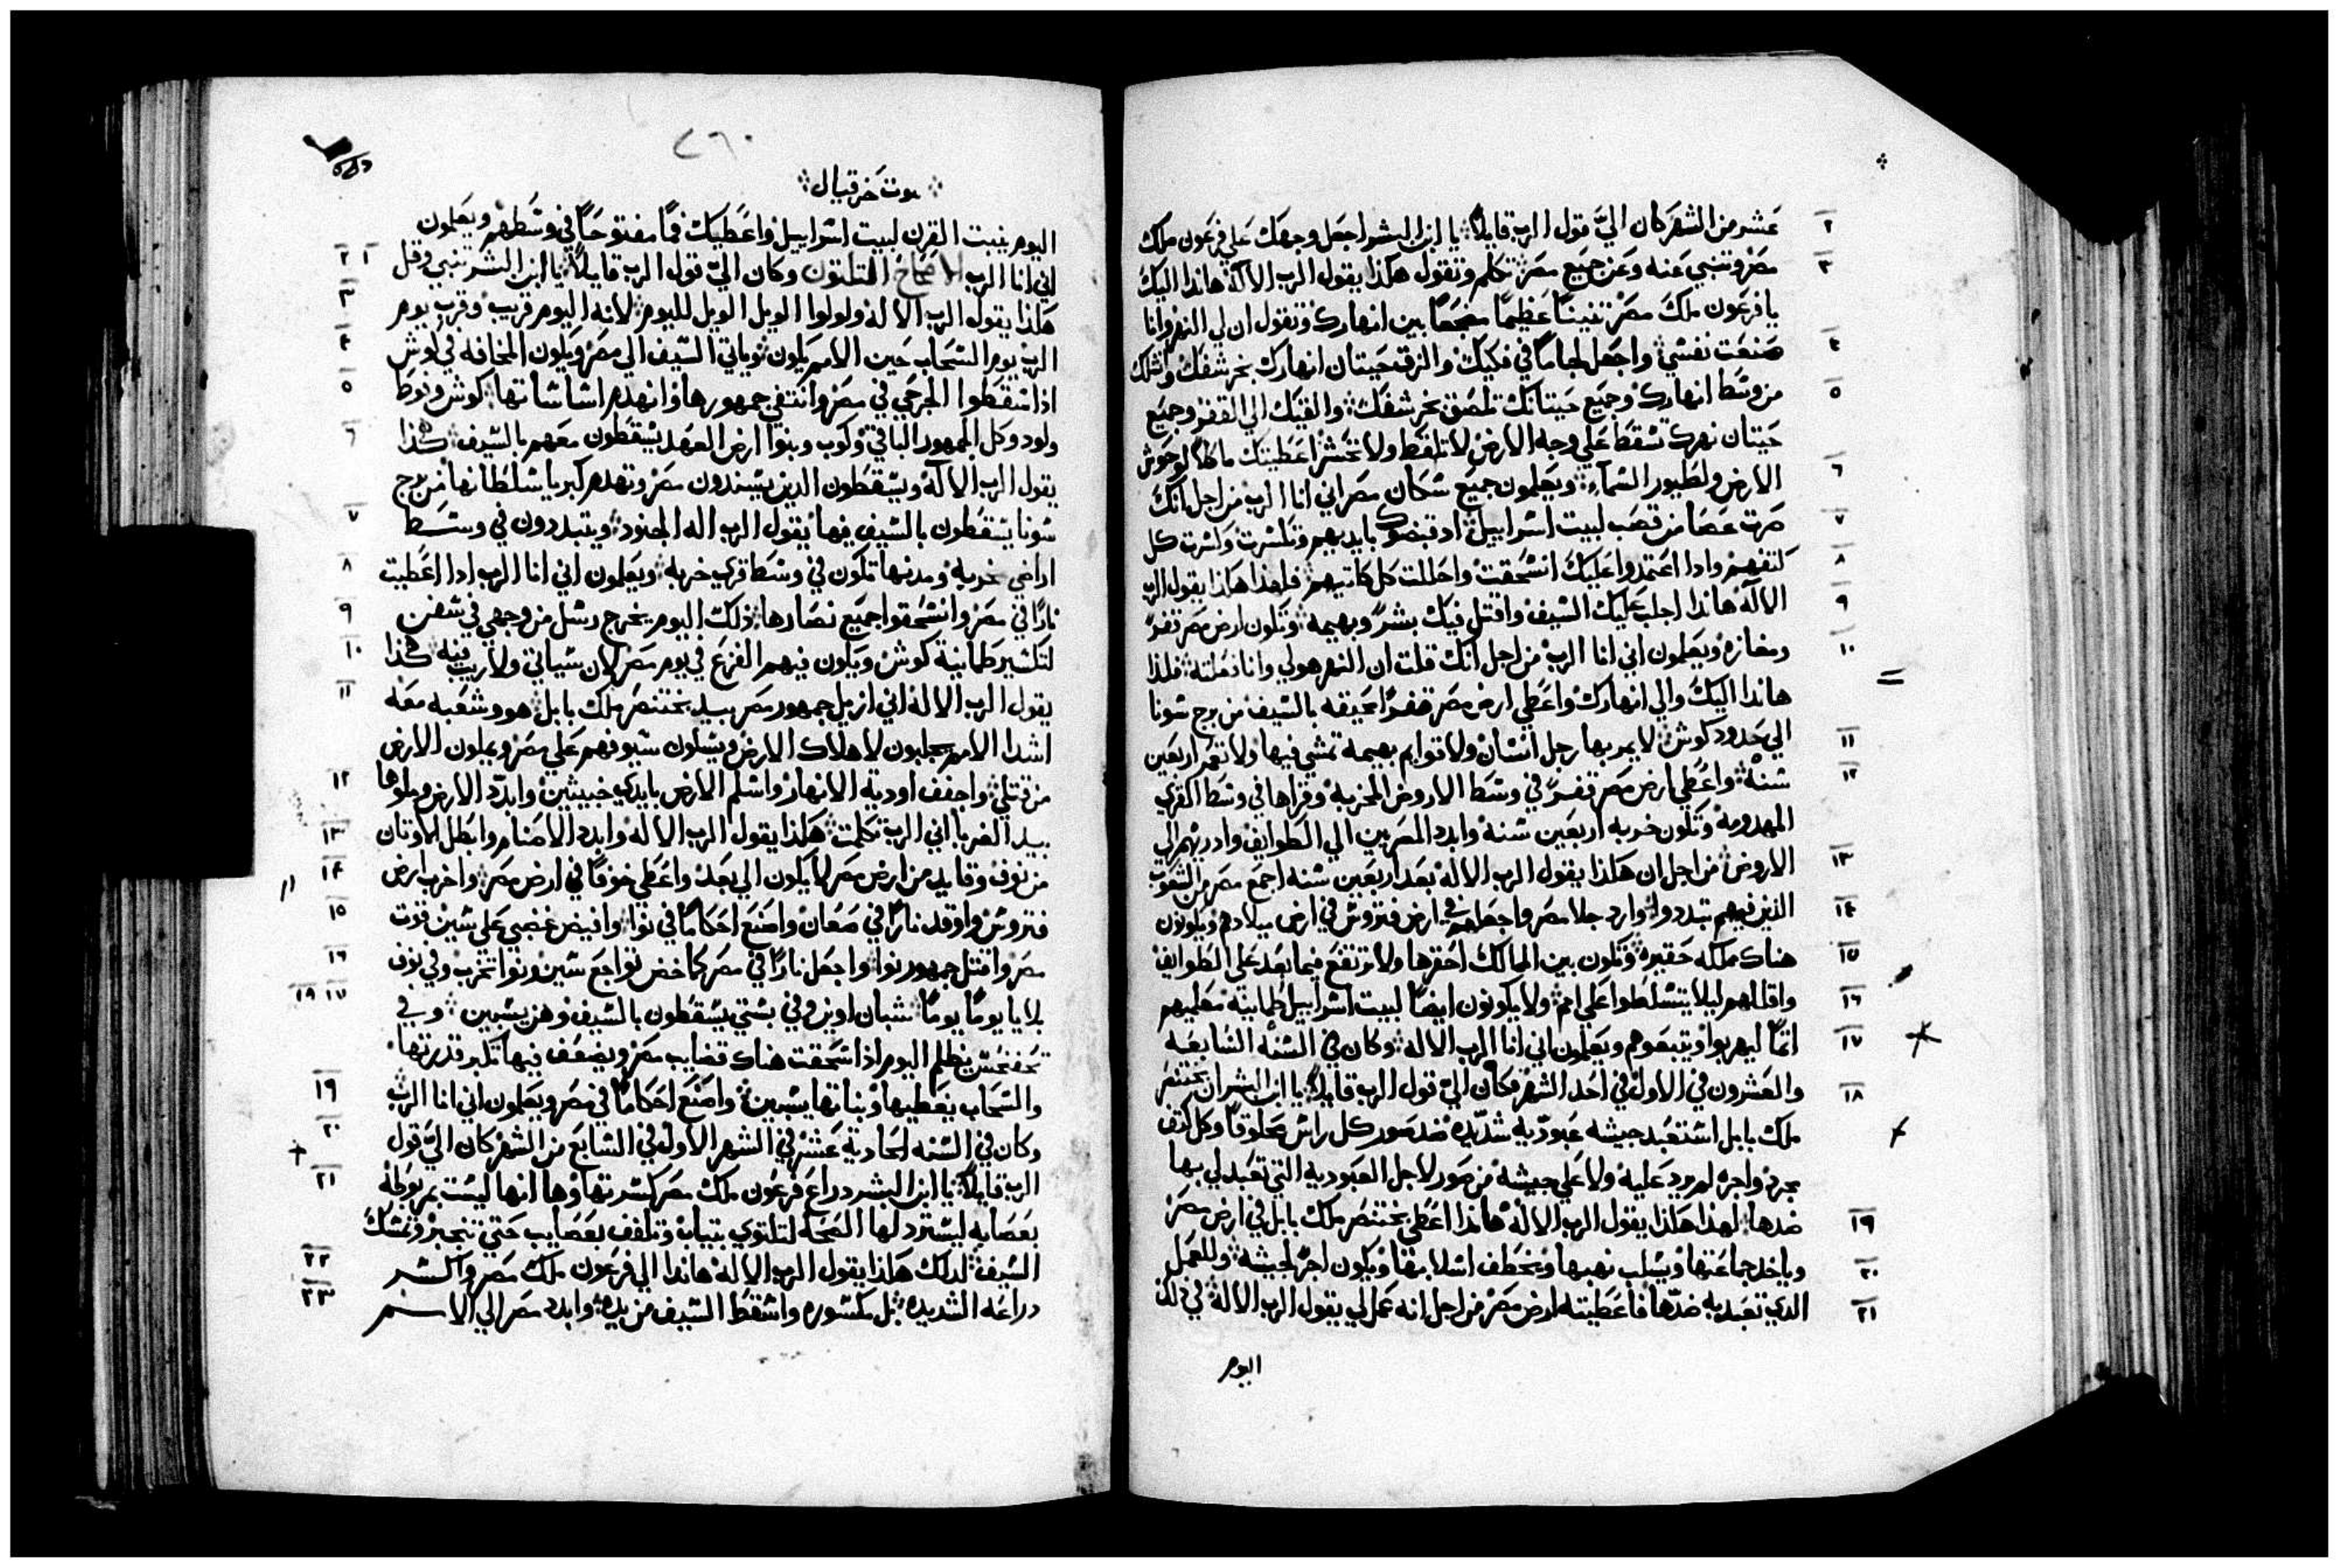 عشر من الشهر كان اليّ قول الرب قايلاً يا ابن البشر اجعل وجهك علي فرعون ملك
مصر وتنبي عنه وعن جميع مصر تكلم وتقول هكذا يقول الرب الاله هاندا اليك
يا فرعون ملك مصر تنيناً عظيماً مضجعاً بين انهارك وتقول ان لي النهر وانا
صنعت نفسي واجعل لجاماً في فكيك والزق حيتان انهارك بخرشفك واشلك
من وسط انهارك وجميع حيتانك تلصق بخرشفك والقيك الي القفر وجميع
حيتان نهرك تسقط علي وجه الارض لا تلقط ولا تحشر اعطيتك ماكلاً لوحوش
الارض ولطيور السماء ويعلمون جميع سكان مصر اني انا الرب من اجل انك
صرت عصا من قصب لبيت اسراييل اد قبضوك بايديهم وتكسرت وكسرت كل
كتفهم وادا اعتمدوا عليك انسحقت واحللت كل كليتيهم فلهدا هكذا يقول الرب
الاله هاندا اجلب عليك السيف واقتل فيك بشر وبهيمه وتكون ارض مصر قفر
ومغازه ويعلمون اني انا الرب من اجل انك قلت ان النهر هو لي وانا فعلته فلذا
هاندا اليك والي انهارك واعطي ارض مصر قفراً محيقه بالسيف من برج سونا
الي حدود كوش لا يمر بها رجل انسان ولا قوايم بهيمه تمشي فيها ولا تعمر اربعين
سنه واعطي ارض مصر قفر في وسط الاروض الخربه وقراها في وسط القري
المهدومه وتكون خربه اربعين سنه وابدد المصريين الي الطوايف وادريهم الي
الاروض من اجل ان هكذا يقول الرب الاله بعد اربعين سنه اجمع مصر من الشعوب
الذين فيهم تبددوا وارد جلا مصر واجعلهم في ارض فتروش في ارض ميلادهم ويكونون
هناك مملكه حقيره وتكون بين الممالك احقرها ولا ترتفع فيما بعد علي الطوايف
واقللهم ليلا يتسلطوا علي امم ولا يكونون ايضاً لبيت اسراييل طمانينه معلميهم
اثماً ليهربوا ويتبعوهم ويعلمون اني انا الرب الاله وكان في السنه السابعه
والعشرون في الاول في احد الشهر كان اليّ قول الرب قايلاً يا ابن البشر ان بختنصر
ملك بابل استعبد جيشه عبوديه شديده ضد صور كل راس محلوقاً وكل كتف
مجرد واجره لم يرد عليه ولا علي جيشه من صور لاجل العبوديه التي تعبد لي بها
ضدها لهذا هكذا يقول الرب الاله هاندا اعطي بختنصر ملك بابل في ارض مصر
وياخذ جماعتها ويسلب نهبها ويخطف اسلابها ويكون اجر لجيشه وللعمل
الدي تعبد به ضدها فاعطيته ارض مصر من اجل انه عمل لي يقول الرب الاله في ذلك
اليوم
٢٦٠
نبوت حزقيال
اليوم ينبت القرن لبيت اسراييل واعطيك فماً مفتوحاً في وسطهم ويعلمون
اني انا الرب الاصحاح الثلثون وكان اليّ قول الرب قايلاً يا ابن البشر تنبي وقل
هكذا يقول الرب الاله ولولوا الويل الويل لليوم لانه اليوم قريب وقرب يوم
الرب يوم السحاب حين الامم يكون وياتي السيف الي مصر ويكون المخافه في كوش
اذا سقطوا الجرحي في مصر وانتفي جمهورها وانهدم اساساتها كوش وفوط
ولود وكل الجمهور الباقي وكوب وبنوا ارض العهد يسقطون معهم بالسيف هكذا
يقول الرب الاله ويسقطون الذين يسندون مصر وتهدم كبريا سلطانها من برج
سونا يسقطون بالسيف فيها يقول الرب اله الجنود ويتبددون في وسط
اراضي خربه ومدنها تكون في وسط قري خربه ويعلمون اني انا الرب ادا اعطيت
ناراً في مصر وانسحقوا جميع نصارها ذلك اليوم يخرج رسل من وجهي في سفن
لتكسير طمانينة كوش ويكون فيهم الفزع في يوم مصر لان سياتي ولا ريب فيه هكذا
يقول الرب الاله اني ازيل جمهور مصر بيد بختنصر ملك بابل هو وشعبه معه
اشدا الامم يجلبون لاهلاك الارض ويسلون سيوفهم علي مصر ويملون الارض
من قتلي واجفف اودية الانهار واسلم الارض بايدي خبيثين وابدد الارض وملوها
بيد الغربا اني الرب تكلمت هكذا يقول الرب الاله وابدد الاصنام وابطل الاوثان
من نوف وقايد من ارض مصر لا يكون الي بعد واعطي خوفاً في ارض مصر واخرب ارض
فتروش واوقد ناراً في صعان واصنع احكاماً في نوا وافيض غضبي علي سين قوت
مصر واقتل جمهور نوا واجعل ناراً في مصر كماخض تواجع سين ونوا تخرب وفي نوف
بلايا يوماً يوماً شبان اون وفي بستي يسقطون بالسيف وهن يسبين وفي
تحفنحس يظلم اليوم اذا سحقت هناك قضايب مصر ويضعف فيها تكبر قدرتها
والسحاب يغطيها وبناتها يسبين واصنع احكاماً في مصر ويعلمون اني انا الرب
وكان في السنه الحاديه عشر في الشهر الاول في السابع من الشهر كان اليّ قول
الرب قايلاً يا ابن البشر دراع فرعون ملك مصر كسرتها وها انها ليست بمربوطه
بعصابه ليسترد لها الصحه لتلتوي بتياب وتلفف بعصايب حتي تنجبر وتمسك
السيف لدلك هكذا يقول الرب الاله هاندا الي فرعون ملك مصر واكسر
دراعه الشديده بل مكسوره واسقط السيف من يده وابدد مصر الي الامم